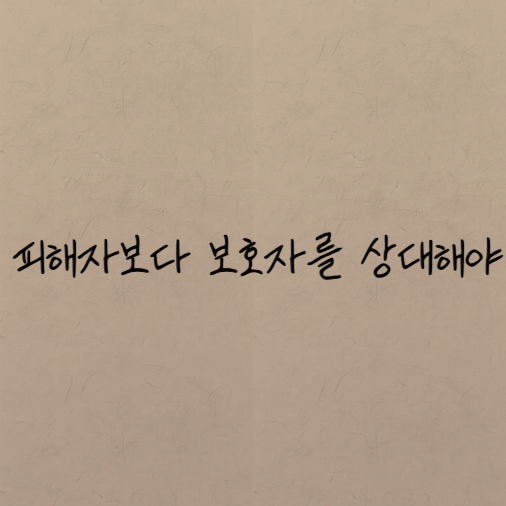 피해자보다 보호자를 상대해야